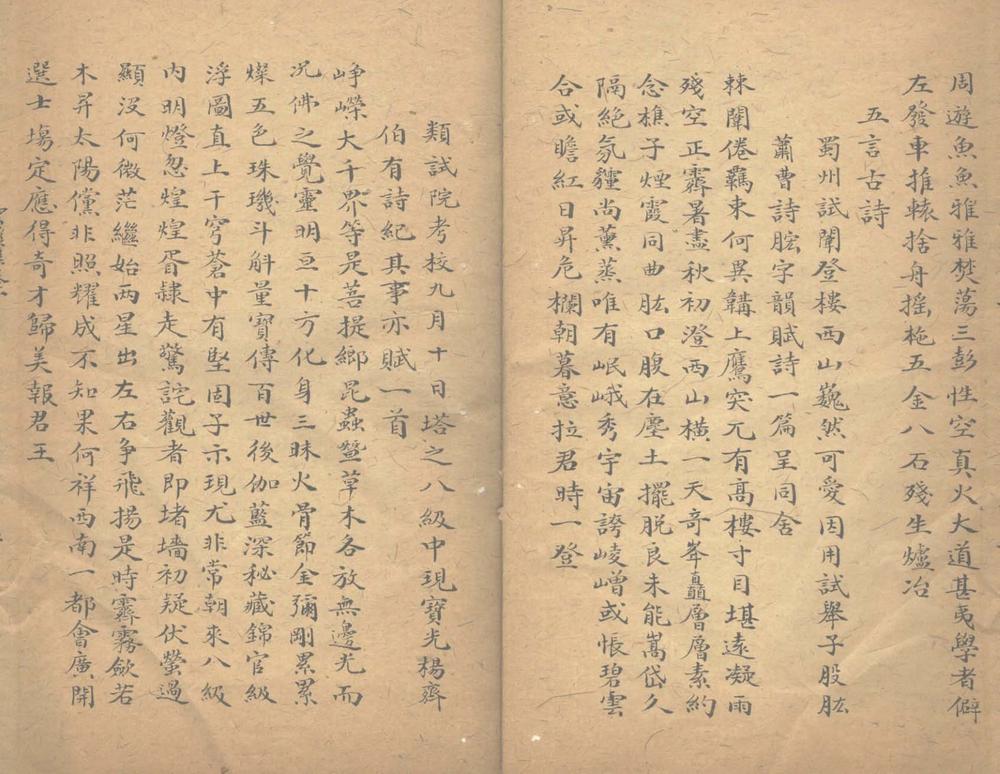 周遊魚魚雅雅焚蕩三彭性空真火大道甚夷學者僻
左發車推轅捨舟摇柂五金八石殘生爐冶
五言古詩
蜀州試闈登樓西山巍然可愛因用試舉子股肱
蕭曹詩肱字韻賦詩一篇呈同舍
棘闈倦羈束何異韝上鷹突兀有高樓寸目堪遠凝雨
殘空正霽暑盡秋初澄西山橫一天奇峯矗層層素約
念樵子煙霞同曲肱口腹在塵土擺脱良未能嵩岱久
隔絶氛霾尚薰蒸唯有岷峨秀宇宙誇崚嶒或悵碧雲
合或瞻紅日昇危欄朝暮意拉君時一登
類試院考校九月十日塔之八級中現寶光楊齊
伯有詩紀其事亦賦一首
崢嶸大千界等是菩提鄉昆蟲暨草木各放無邊光而
况佛之覺靈明亘十方化身三昧火骨節金彌剛累累
燦五色珠璣斗斛量寶傳百世後伽藍深秘藏錦官級
浮圖直上干穹蒼中有堅固子示現尤非常朝來八級
内明燈忽煌煌胥隷走驚詫觀者即堵墻初疑伏螢過
顯没何微茫繼始兩星出左右争飛揚是時霽霧歛若
木昇太陽儻非照耀成不知果何祥西南一都會廣開
選士場定應得奇才歸美報君王